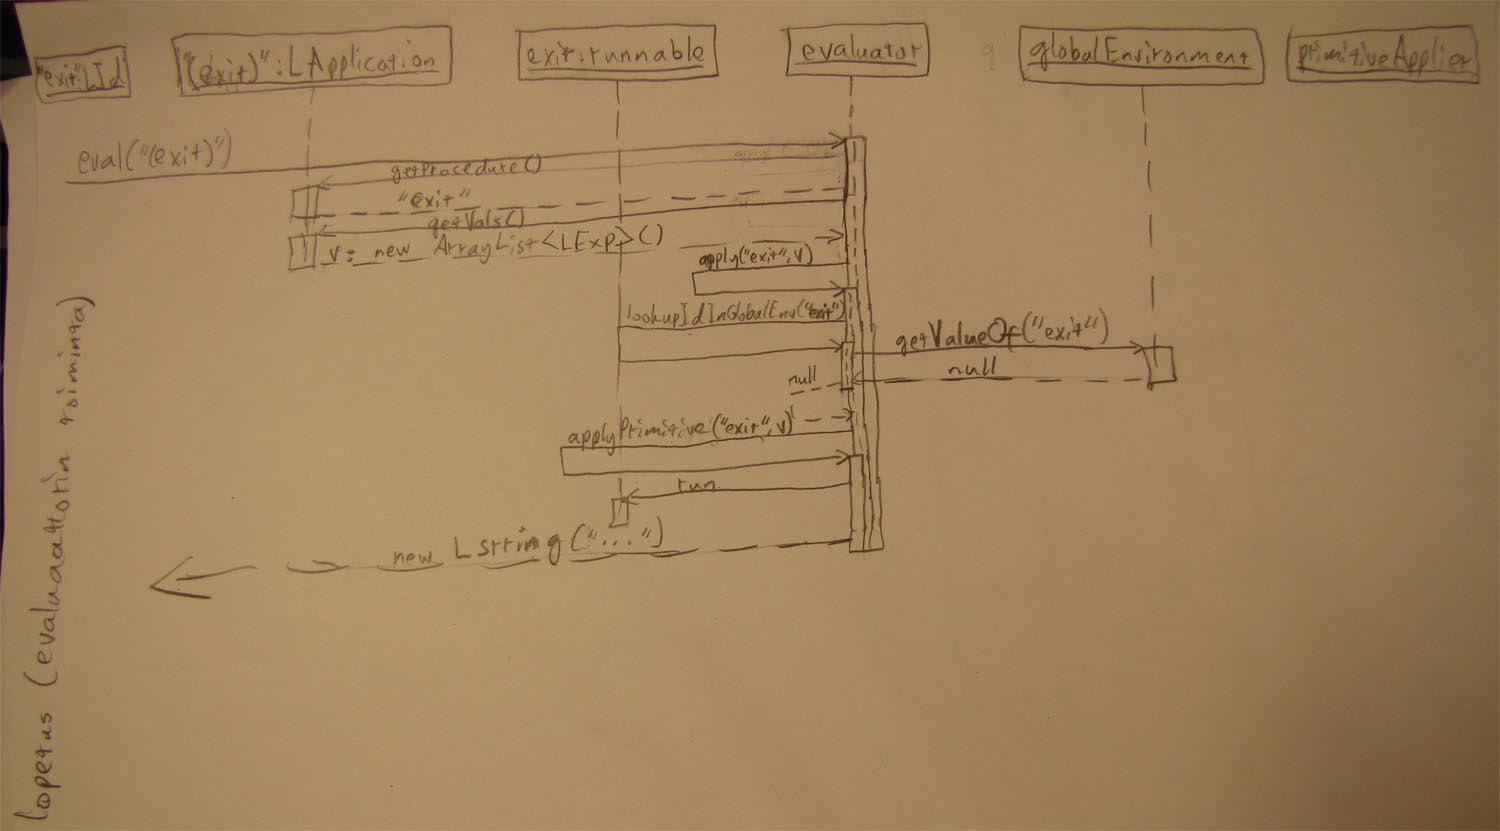 "exit":LId
"(exit)":LApplication
exit:runnable
evaluator
globalEnvironment
primitiveApplier
eval("(exit)")
getProcedure()
"exit"
getVals()
v: new ArrayList<LExp>()
apply("exit",v)
lookupIdInGlobalEnv("exit")
getValueOf("exit")
null
null
applyPrimitive("exit",v)
run
new LString("...")
lopetus (evaluaattorin toiminta)